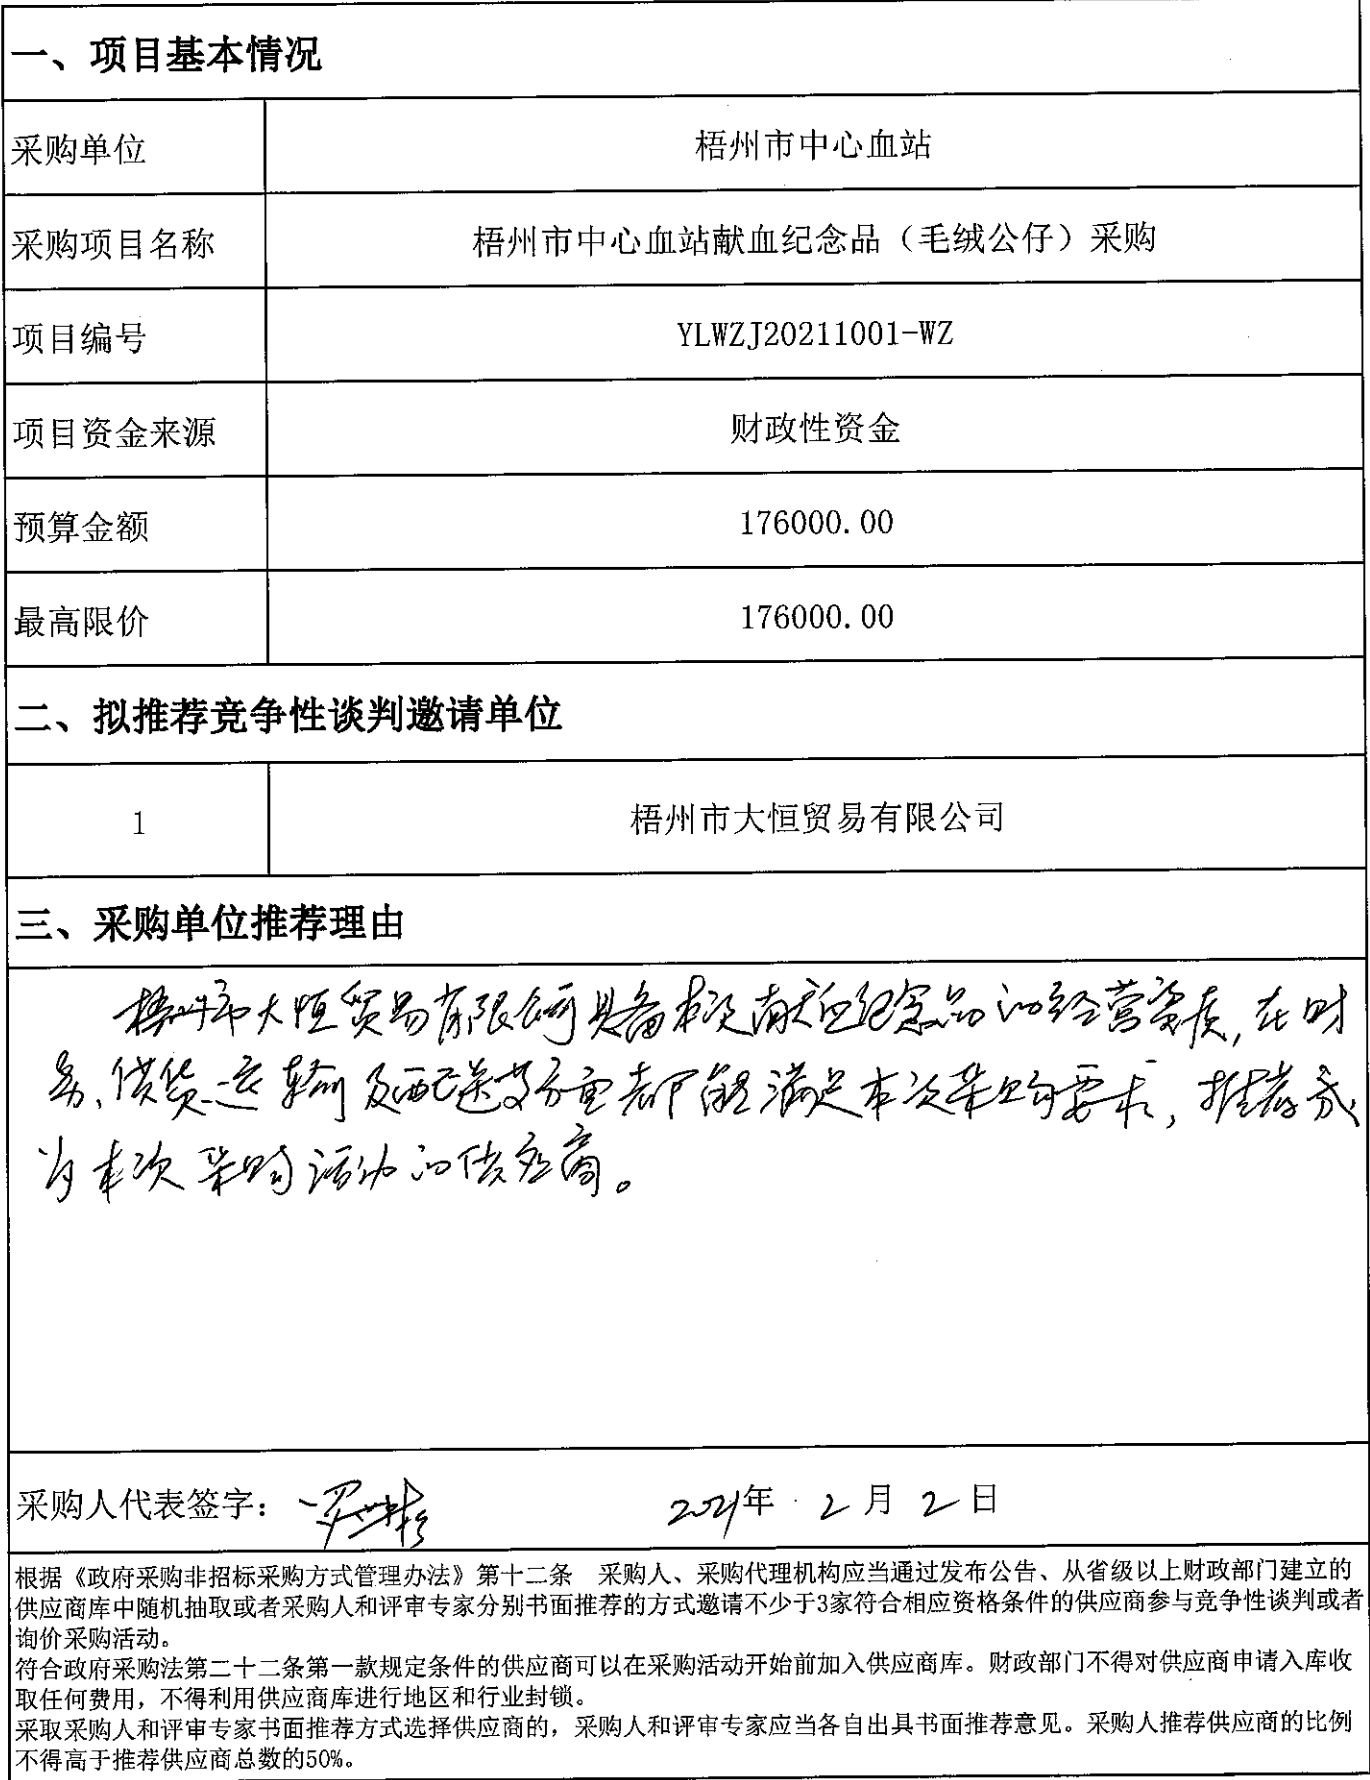 一、项目基本情况
采购单位 梧州市中心血站
采购项目名称 梧州市中心血站献血纪念品（毛绒公仔）采购
项目编号 YLWZJ20211001-WZ
项目资金来源 财政性资金
预算金额 176000.00
最高限价 176000.00
二、拟推荐竞争性谈判邀请单位
1 梧州市大恒贸易有限公司
三、采购单位推荐理由
梧州市大恒贸易有限公司具备本次献血纪念品的经营资质，在财
务、供货运输及配送等方面都能满足本次采购要求，推荐成
为本次采购活动的供应商。
采购人代表签字： 2021年 2 月 2 日
根据《政府采购非招标采购方式管理办法》第十二条 采购人、采购代理机构应当通过发布公告、从省级以上财政部门建立的
供应商库中随机抽取或者采购人和评审专家分别书面推荐的方式邀请不少于3家符合相应资格条件的供应商参与竞争性谈判或者
询价采购活动。
符合政府采购法第二十二条第一款规定条件的供应商可以在采购活动开始前加入供应商库。财政部门不得对供应商申请入库收
取任何费用，不得利用供应商库进行地区和行业封锁。
采取采购人和评审专家书面推荐方式选择供应商的，采购人和评审专家应当各自出具书面推荐意见。采购人推荐供应商的比例
不得高于推荐供应商总数的50%。